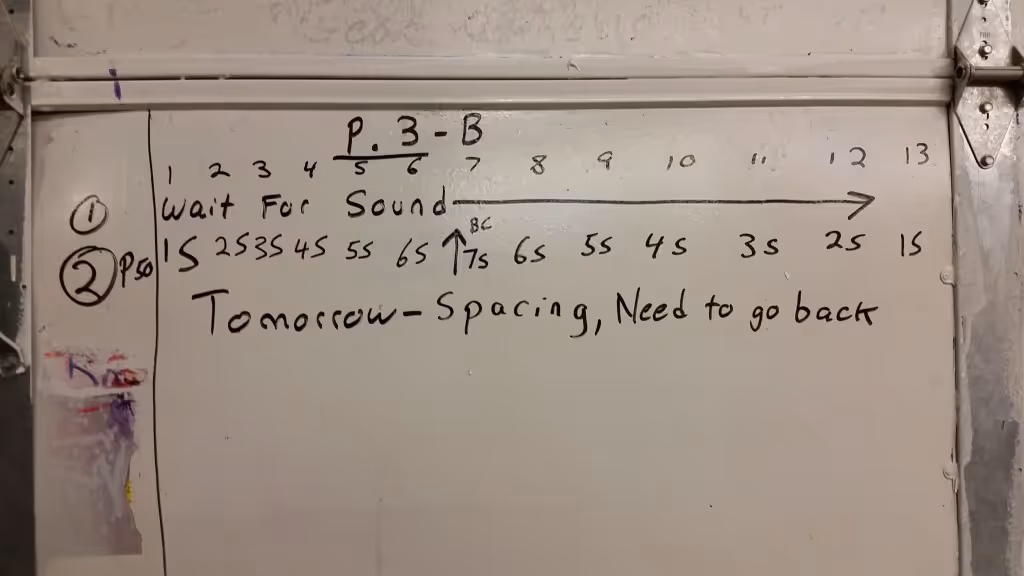 P. 3 - B
1 2 3 4 5 6 7 8 9 10 11 12 13
① Wait For Sound
BC
② P50 1S 2S 3S 4S 5S 6S ↑ 7s 6s 5s 4s 3s 2s 1S
Tomorrow - Spacing, Need to go back